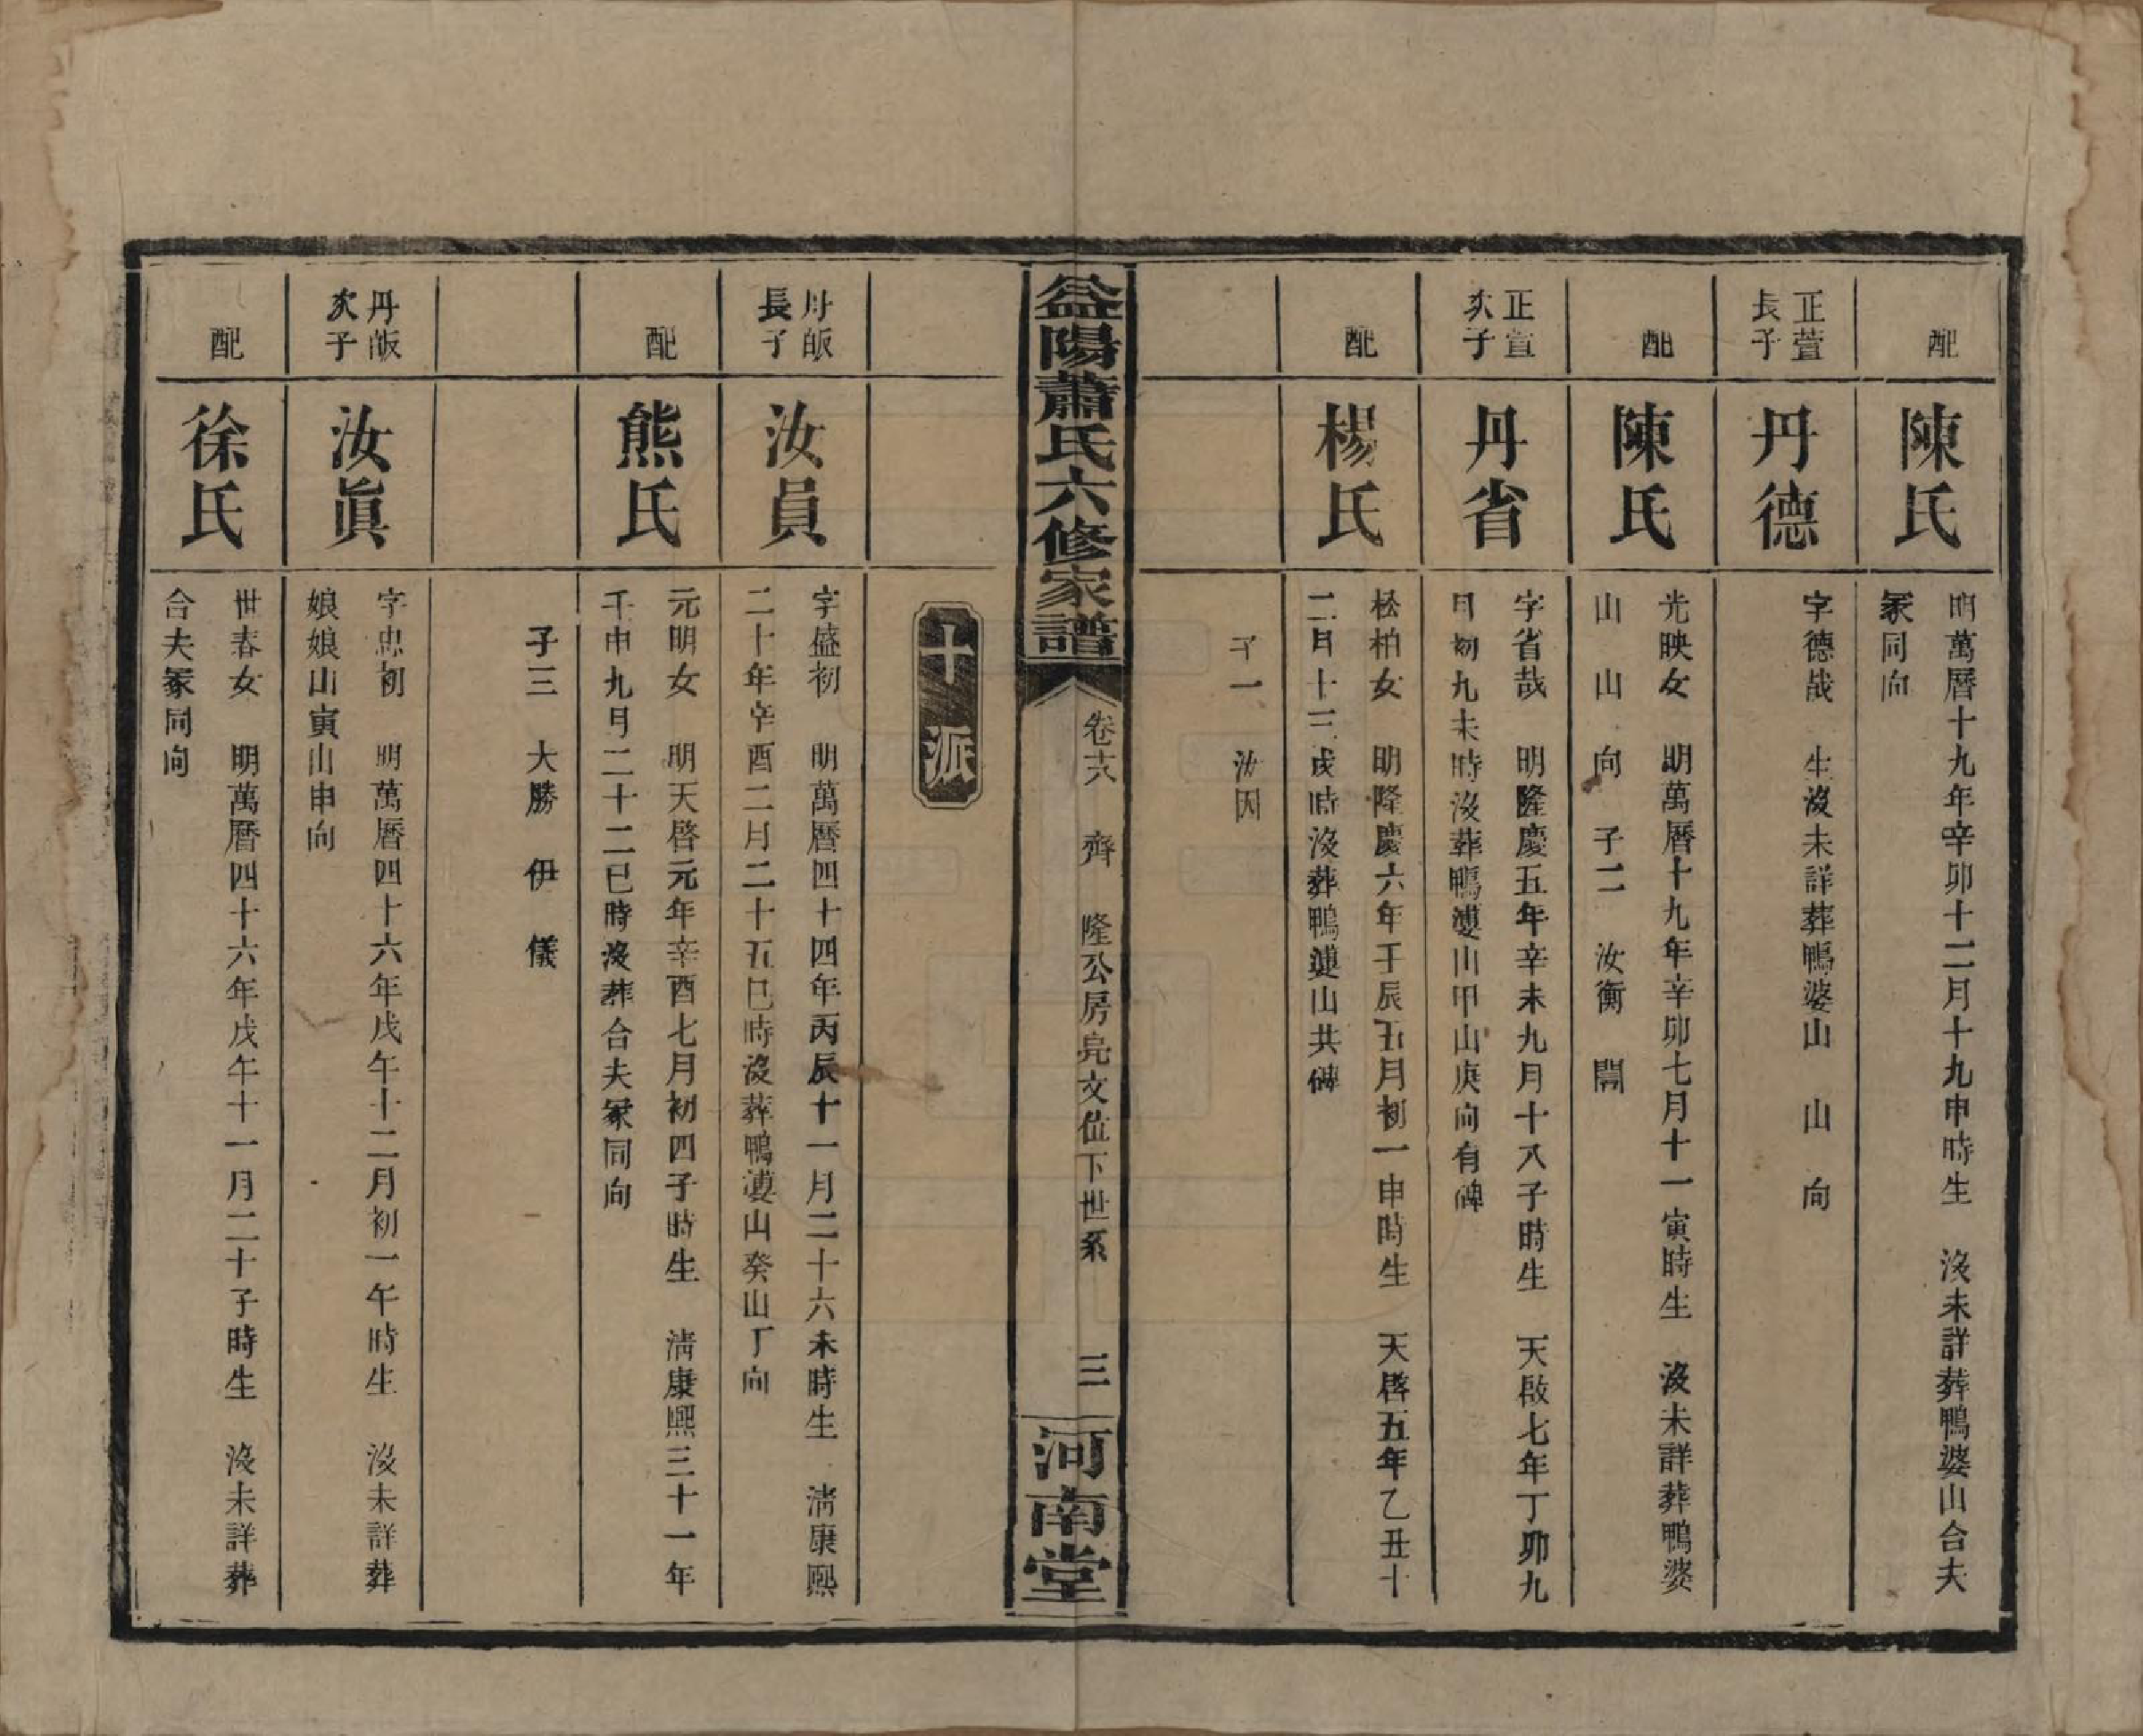 配
陳氏
明萬曆十九年辛卯十二月十九申時生　沒未詳葬鴨婆山合夫
冢同向
正萱
長子
丹德
字德哉　生沒未詳葬鴨婆山　山　向
配
陳氏
光映女　明萬曆十九年辛卯七月十一寅時生　沒未詳葬鴨婆
山　山　向　子二　汝衡　誾
正萱
次子
丹省
字省哉　明隆慶五年辛未九月十八子時生　天啟七年丁卯九
月初九未時沒葬鴨婆山甲山庚向有碑
配
楊氏
松柏女　明隆慶六年壬辰五月初一申時生　天啓五年乙丑十
二月十三戌時沒葬鴨婆山共碑
子一　汝因
益陽蕭氏六修家譜
卷十六　齊　隆公房亮文位下世系　三
河南堂
十派
丹皈
長子
汝員
字盛初　明萬曆四十四年丙辰十一月二十六未時生　淸康熙
二十年辛酉二月二十五巳時沒葬鴨婆山癸山丁向
配
熊氏
元明女　明天啓元年辛酉七月初四子時生　淸康熙三十一年
壬申九月二十二巳時沒葬合夫冢同向
子三　大勝　伊　儀
丹皈
次子
汝眞
字忠初　明萬曆四十六年戊午十二月初一午時生　沒未詳葬
娘娘山寅山申向
配
徐氏
世春女　明萬曆四十六年戊午十一月二十子時生　沒未詳葬
合夫冢同向